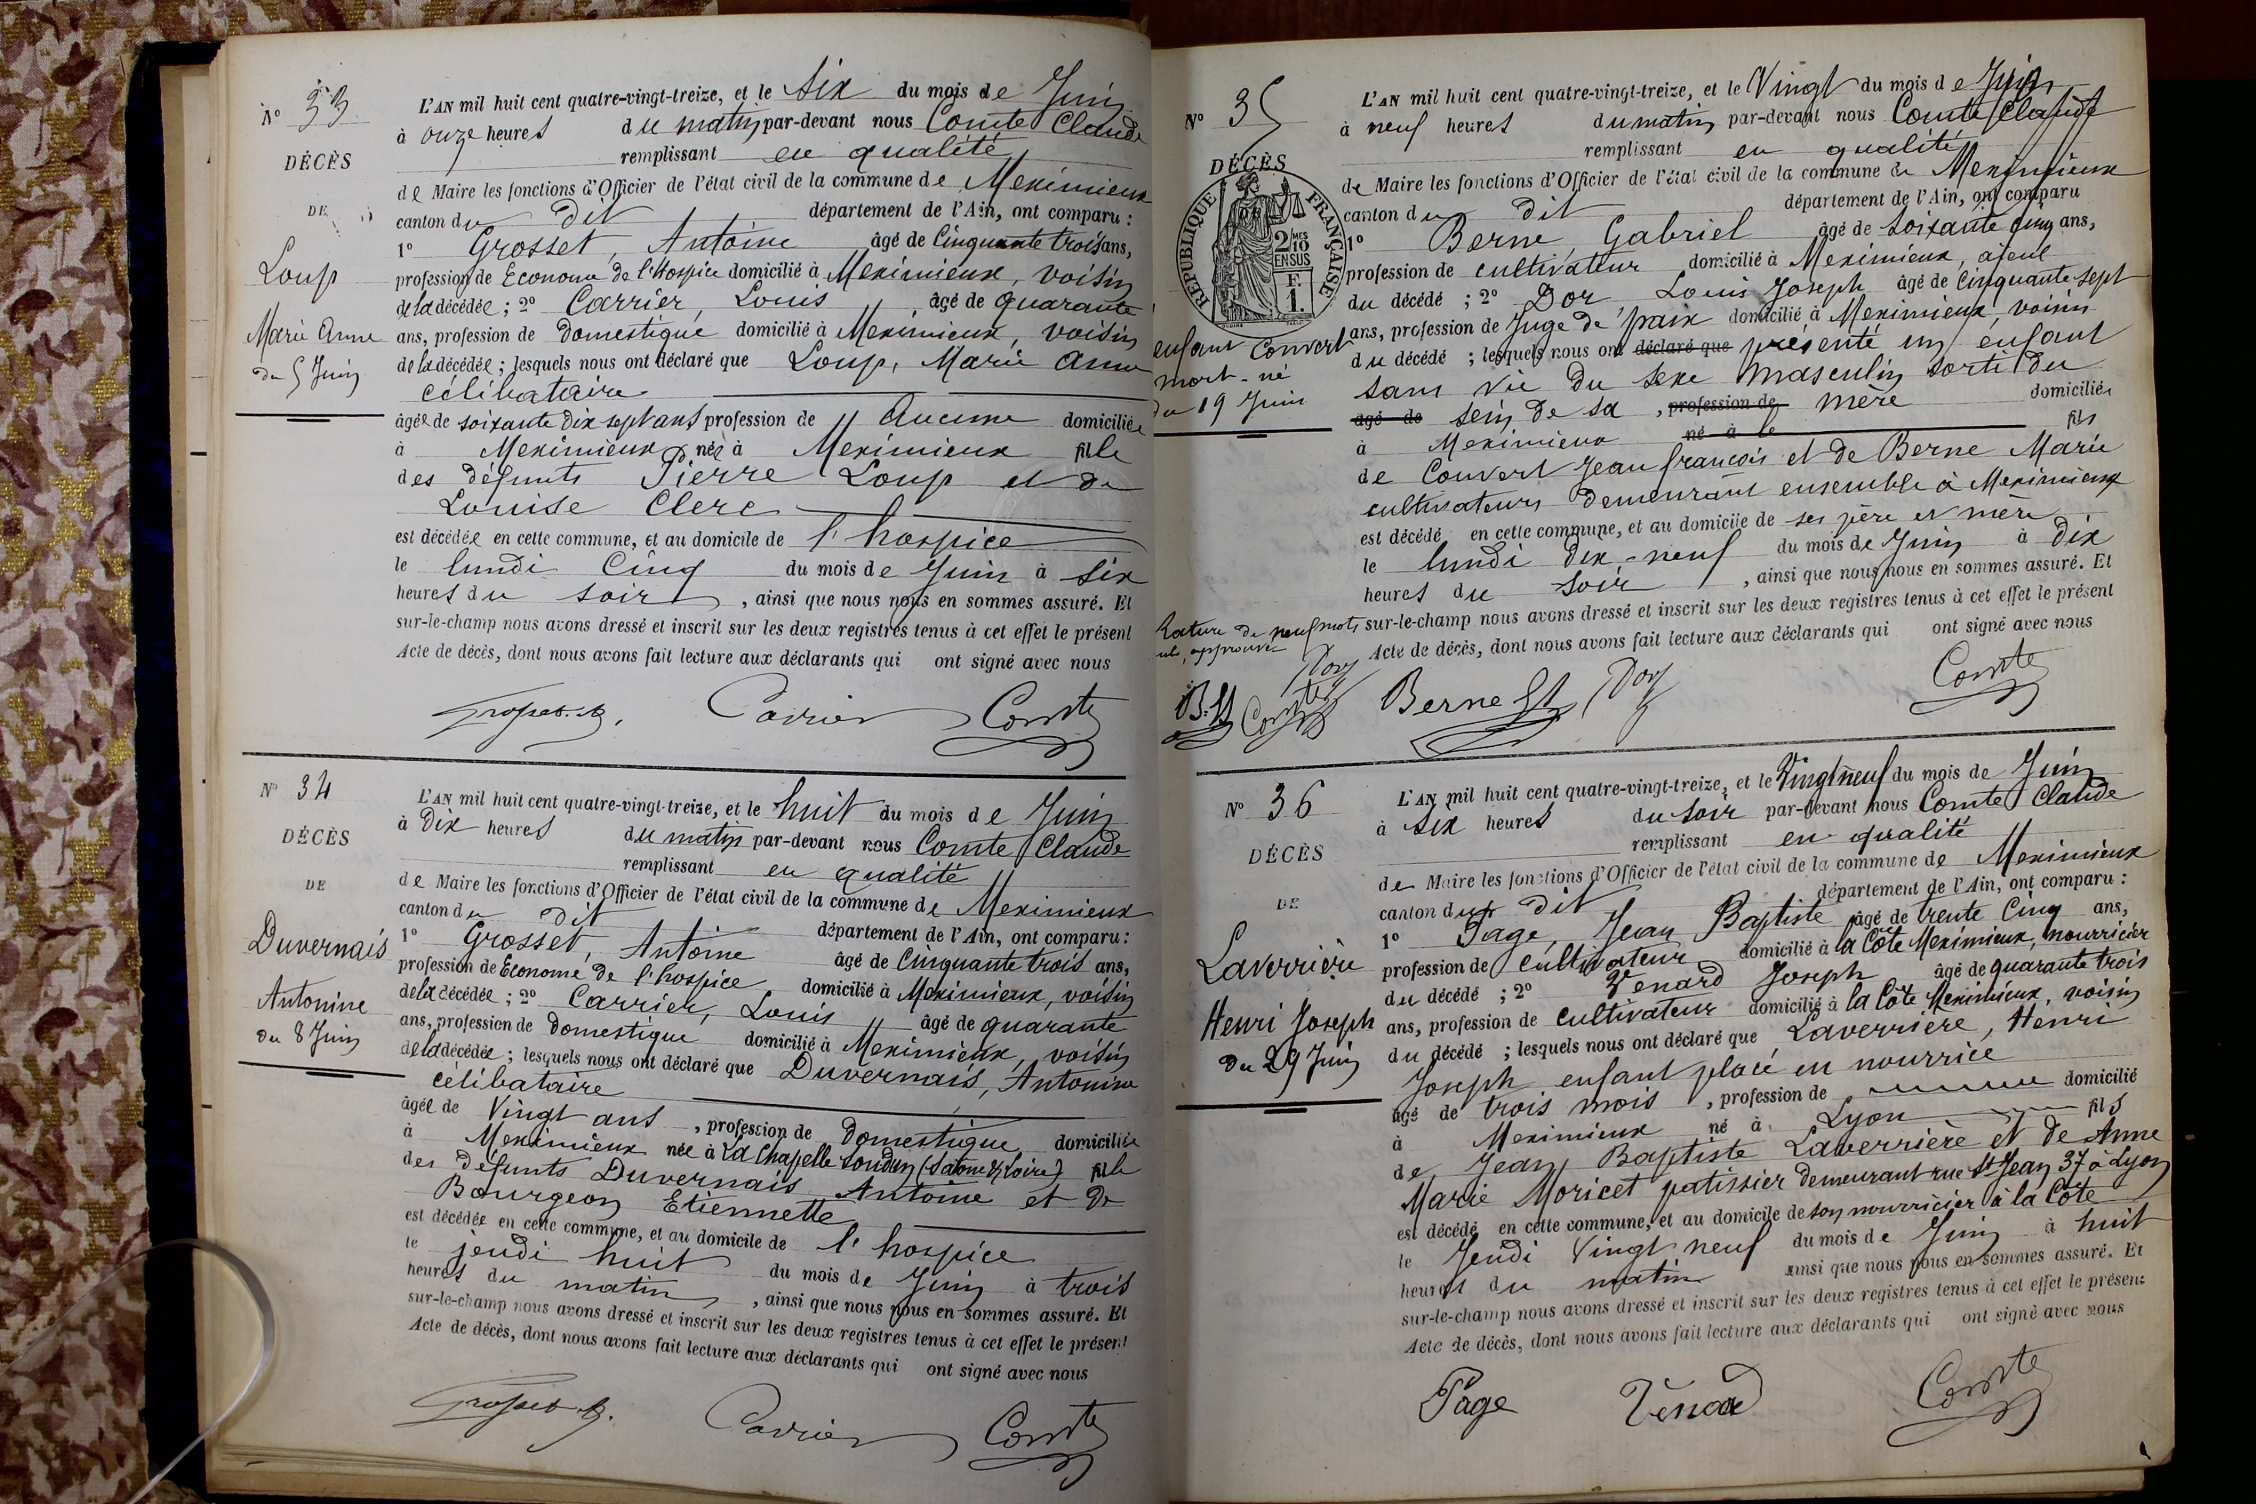 N° 33
DÉCÈS
DE
Loup
Marie Anne
du 5 Juin
L'AN mil huit cent quatre-vingt-treize, et le Six du mois de Juin
à onze heures du matin par-devant nous Comte Claude
remplissant en qualité
de Maire les fonctions d'Officier de l'état civil de la commune de Meximieux
canton du dit département de l'Ain, ont comparu :
1° Grosset, Antoine âgé de Cinquante trois ans,
profession de Econome de l'hospice domicilié à Meximieux, voisin
de la décédée ; 2° Carrier, Louis âgé de quarante
ans, profession de domestique domicilié à Meximieux, voisin
de la décédée ; lesquels nous ont déclaré que Loup, Marie Anne
célibataire
âgée de soixante dix sept ans profession de Aucune domiciliée
à Meximieux née à Meximieux fille
des défunts Pierre Loup et de
Louise Clerc
est décédée en cette commune, et au domicile de l'hospice
le lundi Cinq du mois de Juin à six
heures du soir, ainsi que nous nous en sommes assuré. Et
sur-le-champ nous avons dressé et inscrit sur les deux registres tenus à cet effet le présent
Acte de décès, dont nous avons fait lecture aux déclarants qui ont signé avec nous
Grosset. A. Carrier Comte
N° 34
DÉCÈS
DE
Duvernais
Antonine
du 8 Juin
L'AN mil huit cent quatre-vingt-treize, et le huit du mois de Juin
à Dix heures du matin par-devant nous Comte Claude
remplissant en qualité
de Maire les fonctions d'Officier de l'état civil de la commune de Meximieux
canton du dit département de l'Ain, ont comparu :
1° Grosset, Antoine âgé de Cinquante trois ans,
profession de Econome de l'hospice domicilié à Meximieux, voisin
de la décédée ; 2° Carrier, Louis âgé de quarante
ans, profession de domestique domicilié à Meximieux, voisin
de la décédée ; lesquels nous ont déclaré que Duvernais, Antonine
célibataire
âgée de Vingt ans, profession de Domestique domiciliée
à Meximieux née à La Chapelle (Saône & Loire) fille
des défunts Duvernais Antoine et de
Bourgeon Etiennette
est décédée en cette commune, et au domicile de l'hospice
le jeudi huit du mois de Juin à trois
heures du matin, ainsi que nous nous en sommes assuré. Et
sur-le-champ nous avons dressé et inscrit sur les deux registres tenus à cet effet le présent
Acte de décès, dont nous avons fait lecture aux déclarants qui ont signé avec nous
Grosset. A. Carrier Comte
N° 35
DÉCÈS
RÉPUBLIQUE FRANÇAISE
2 MES 10 EN SUS
F. 1.
enfant Convert
mort-né
du 19 Juin
L'AN mil huit cent quatre-vingt-treize, et le Vingt du mois de Juin
à neuf heures du matin par-devant nous Comte Claude
remplissant en qualité
de Maire les fonctions d'Officier de l'état civil de la commune de Meximieux
canton du dit département de l'Ain, ont comparu
1° Berne, Gabriel âgé de soixante cinq ans,
profession de cultivateur domicilié à Meximieux, aïeul
du décédé ; 2° Dor Louis Joseph âgé de Cinquante sept
ans, profession de Juge de paix domicilié à Meximieux, voisin
du décédé ; lesquels nous ont déclaré que présenté un enfant
sans vie du sexe masculin sorti du
âgé de sein de sa, profession de mère domiciliée
à Meximieux né à le fils
de Convert Jean françois et de Berne Marie
cultivateurs demeurant ensemble à Meximieux
est décédé en cette commune, et au domicile de ses père et mère
le lundi dix-neuf du mois de Juin à Dix
heures du soir, ainsi que nous nous en sommes assuré. Et
sur-le-champ nous avons dressé et inscrit sur les deux registres tenus à cet effet le présent
Acte de décès, dont nous avons fait lecture aux déclarants qui ont signé avec nous
Rature de neuf mots
nuls, approuvée
B. Gl Comte Dor
Berne Gl Dor Comte
N° 36
DÉCÈS
DE
Laverrière
Henri Joseph
du 29 Juin
L'AN mil huit cent quatre-vingt-treize, et le Vingt neuf du mois de Juin
à six heures du soir par-devant nous Comte Claude
remplissant en qualité
de Maire les fonctions d'Officier de l'état civil de la commune de Meximieux
canton du dit département de l'Ain, ont comparu :
1° Page, Jean Baptiste âgé de trente Cinq ans,
profession de cultivateur domicilié à la Côte Meximieux, nourricier
du décédé ; 2° Venard Joseph âgé de quarante trois
ans, profession de cultivateur domicilié à la Côte Meximieux, voisin
du décédé ; lesquels nous ont déclaré que Laverrière, Henri
Joseph enfant placé en nourrice
âgé de trois mois, profession de domicilié
à Meximieux né à Lyon fils
de Jean Baptiste Laverrière et de Anne
Marie Moricet patissier demeurant rue St Jean 37 à Lyon
est décédé en cette commune, et au domicile de son nourricier à la Côte
le Jeudi Vingt neuf du mois de Juin à huit
heures du matin ainsi que nous nous en sommes assuré. Et
sur-le-champ nous avons dressé et inscrit sur les deux registres tenus à cet effet le présent
Acte de décès, dont nous avons fait lecture aux déclarants qui ont signé avec nous
Page Venard Comte